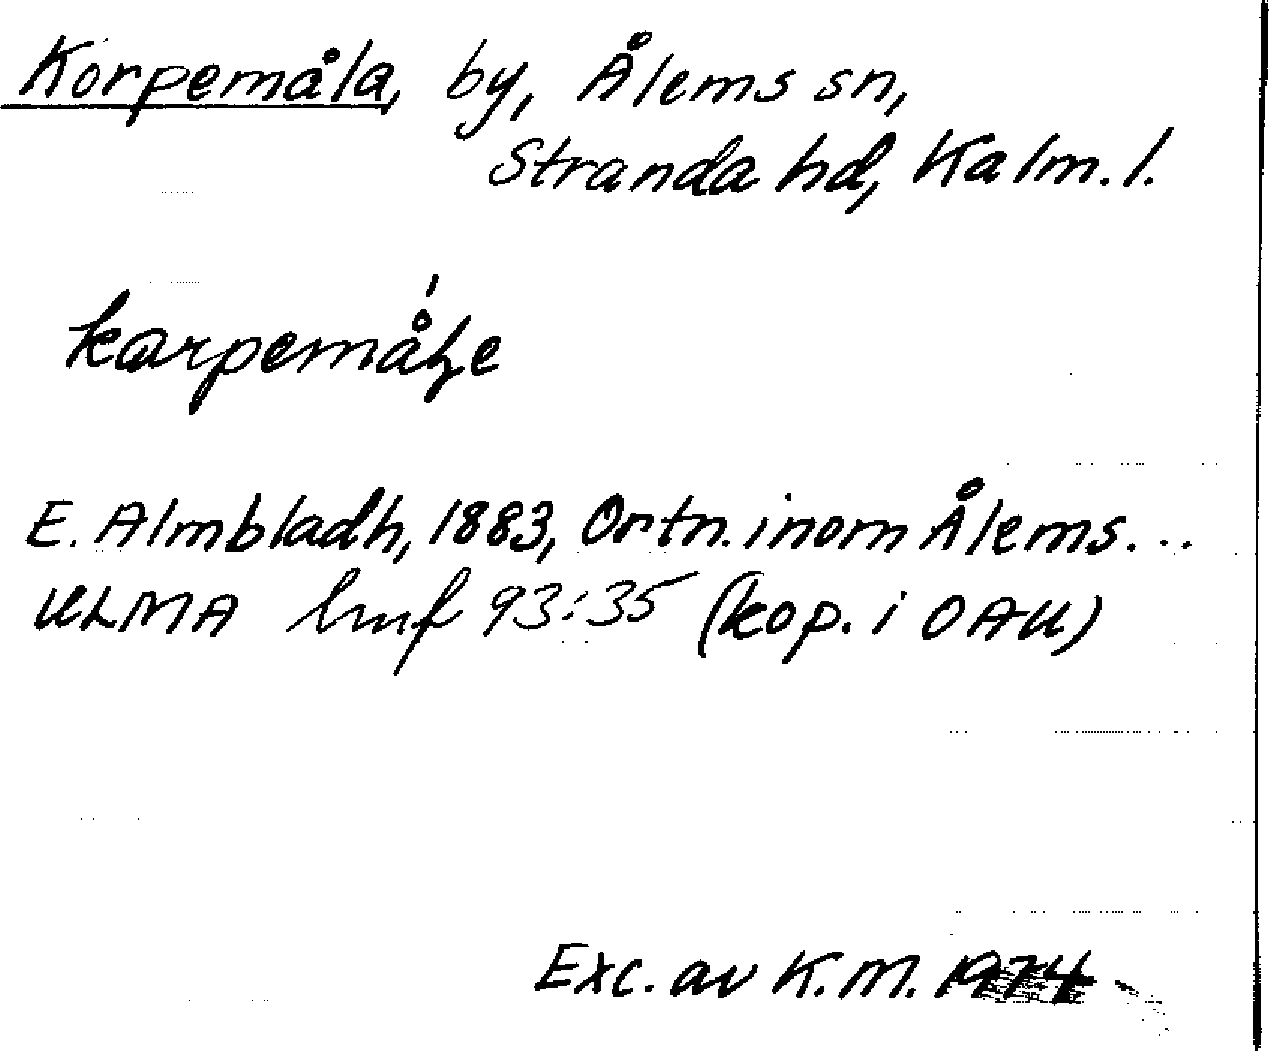 Korpemåla, by, Ålems sn,
Stranda hd, Kalm. l.
kɑrpemǻɫe
E. Almbladh, 1883, Ortn. inom Ålems...
ULMA hmf 93:35 (kop. i OAU)
Exc. av K.M. 1974